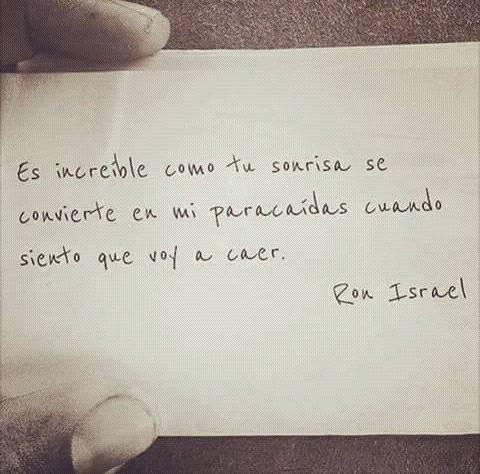 Es increíble como tu sonrisa se
convierte en mi paracaídas cuando
siento que voy a caer.
Ron Israel